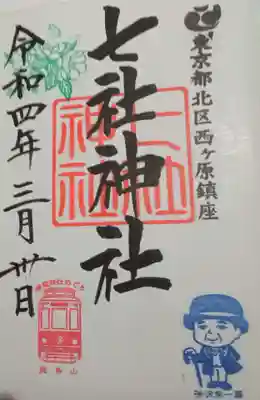 東京都北区西ヶ原鎮座
七社神社
七社
神社
令和四年三月卅日
飛鳥山
渋沢栄一翁